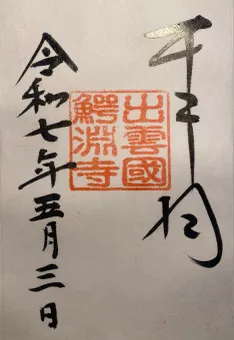 千手
出雲國
鰐淵寺
令和七年五月三日